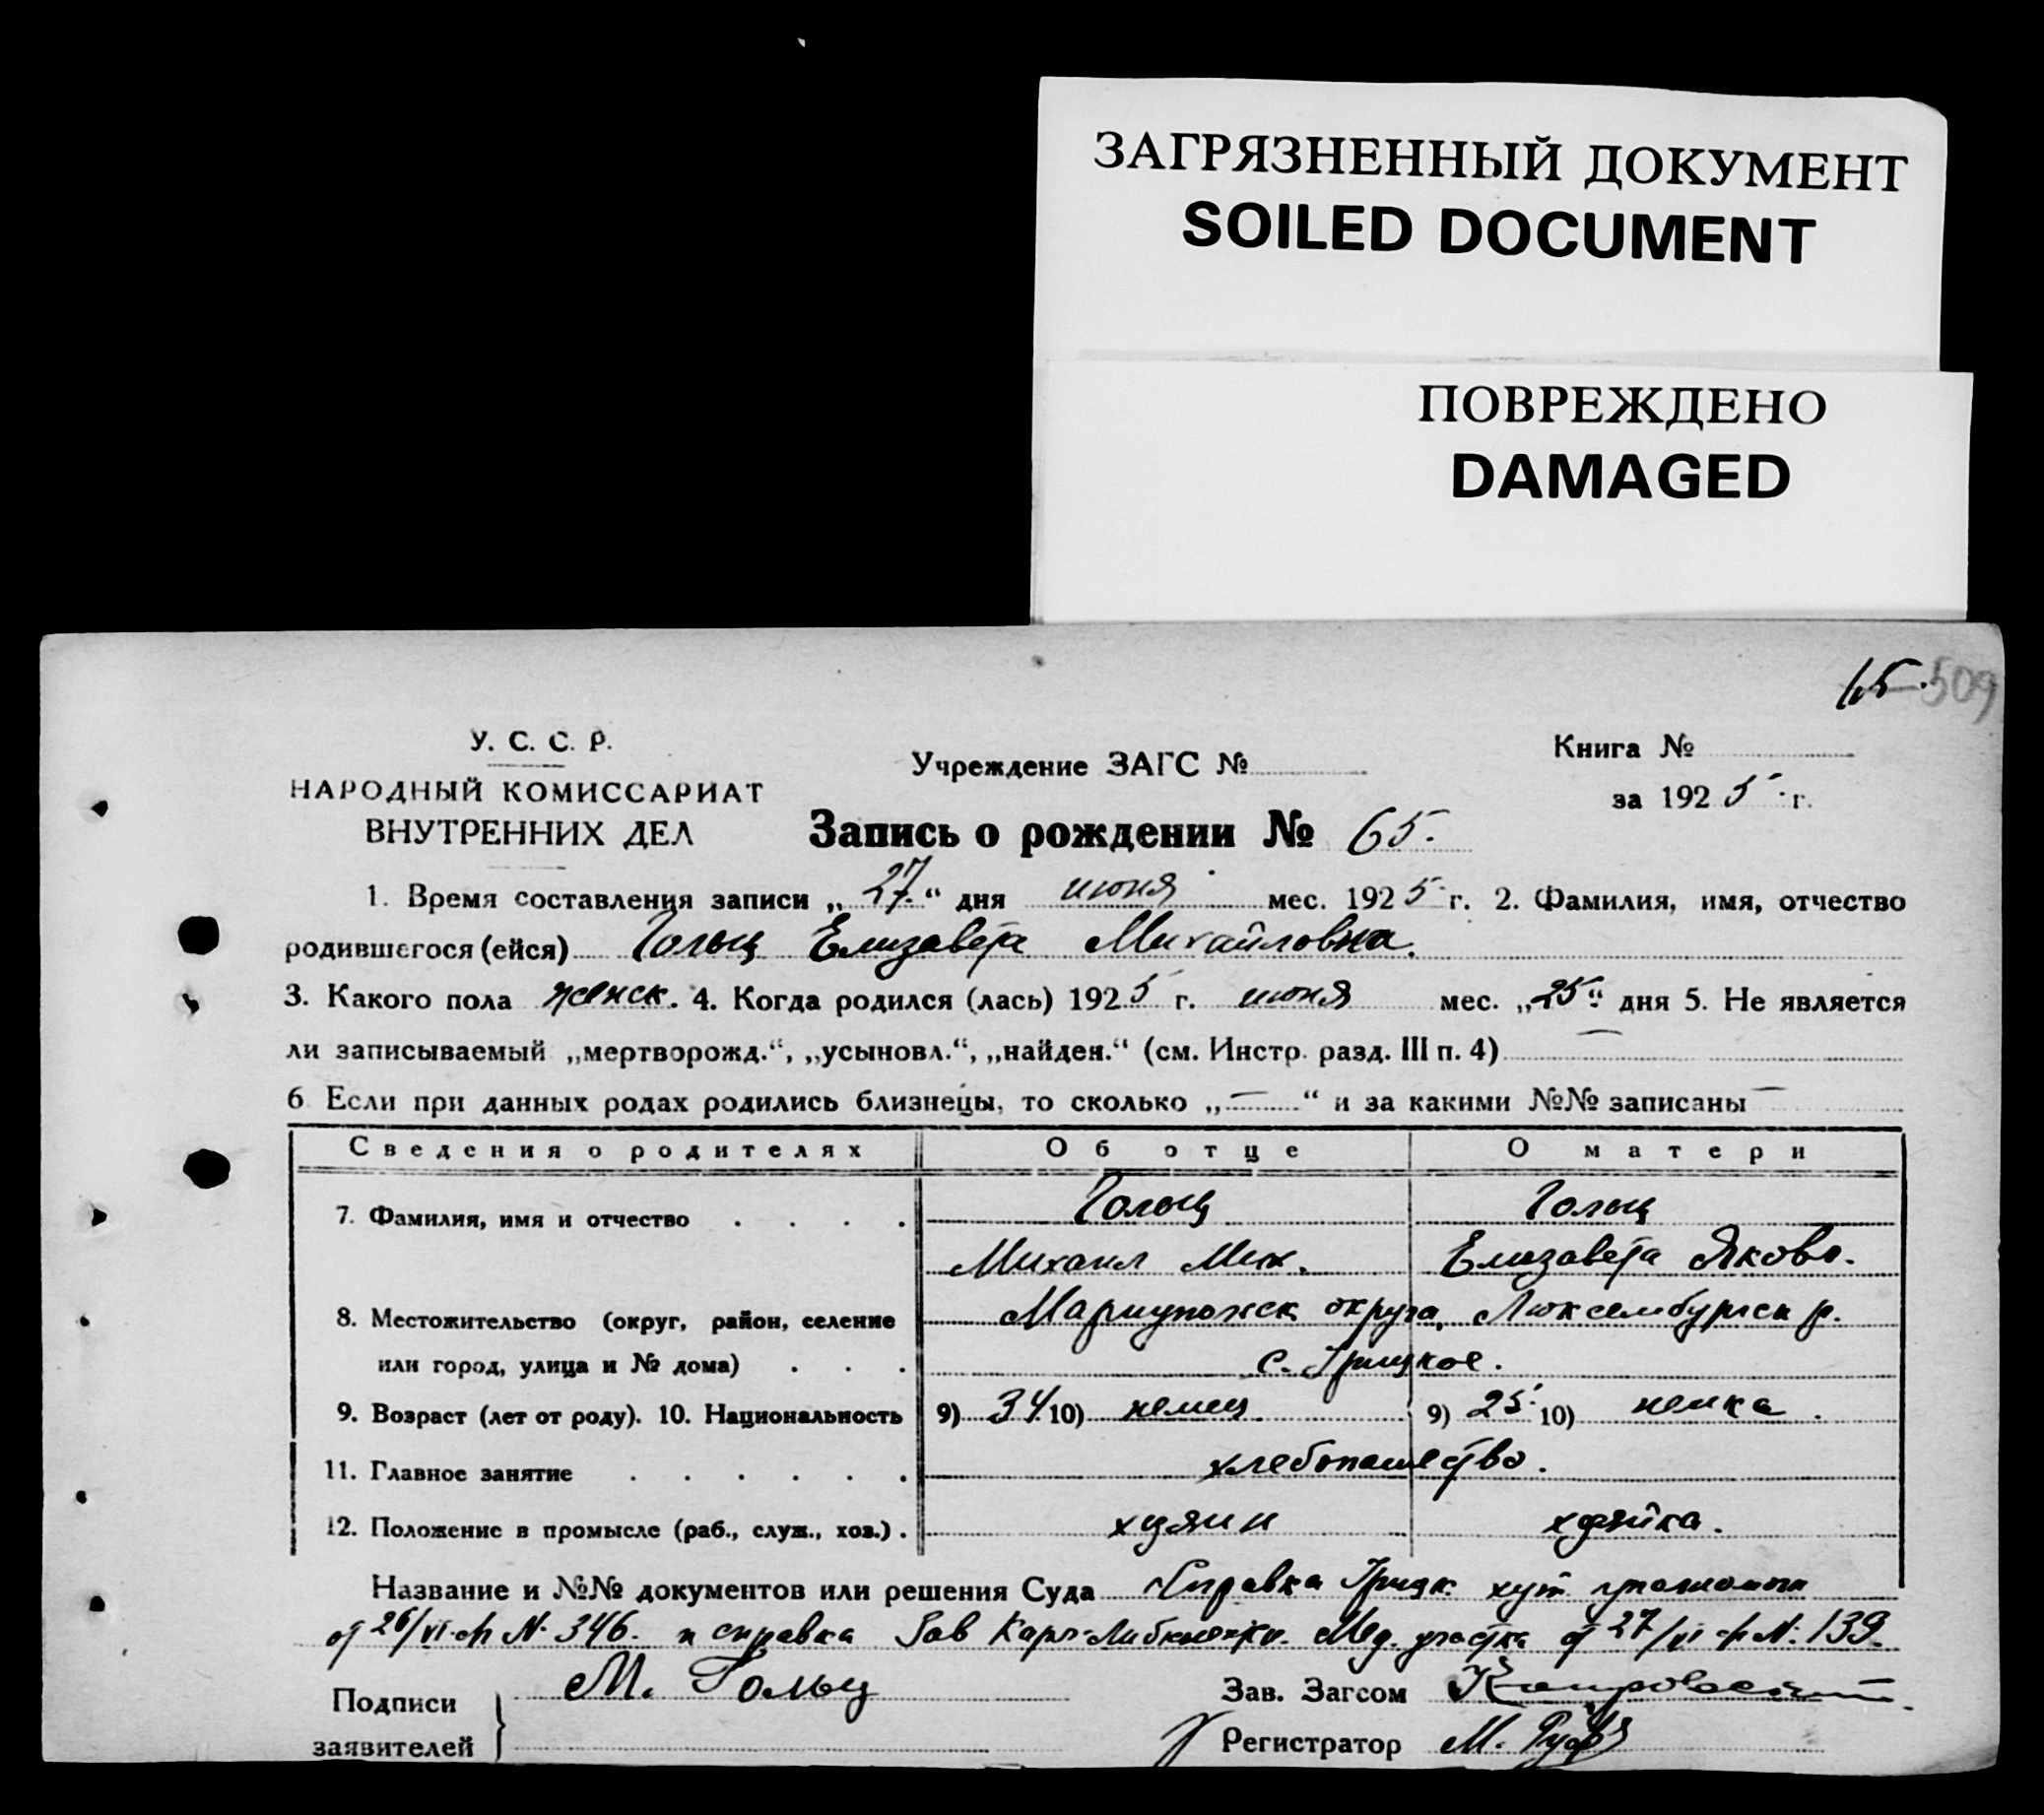 ЗАГРЯЗНЕННЫЙ ДОКУМЕНТ
SOILED DOCUMENT
ПОВРЕЖДЕНО
DAMAGED
65. 509
У. С. С. Р.
НАРОДНЫЙ КОМИССАРИАТ
ВНУТРЕННИХ ДЕЛ
Учреждение ЗАГС №
Книга №
за 1925 г.
Запись о рождении № 65.
1. Время составления записи „27.“ дня июня мес. 1925 г. 2. Фамилия, имя, отчество
родившегося (ейся) Гольц Елизавета Михайловна.
3. Какого пола женск. 4. Когда родился (лась) 1925 г. июня мес. „25“ дня 5. Не является
ли записываемый „мертворожд.“, „усыновл.“, „найден.“ (см. Инстр. разд. III п. 4) —
6 Если при данных родах родились близнецы, то сколько „—“ и за какими №№ записаны —
Сведения о родителях Об отце О матери
7. Фамилия, имя и отчество . . . . Гольц Гольц
Михаил Мих. Елизавета Яковл.
8. Местожительство (округ, район, селение Мариупольск округа, Люксембургск р.
или город, улица и № дома) . . . с. Грицкое.
9. Возраст (лет от роду). 10. Национальность 9) 34 10) немец. 9) 25 10) немка.
11. Главное занятие . . . . . . хлебопашество.
12. Положение в промысле (раб., служ., хоз.) . хозяин хозяйка.
Название и №№ документов или решения Суда Справка Грицк. хут.
от 26/VI с/г N. 346. и справка Зав Карл-Либкнехтов. Мед. участка от 27/VI с/г N. 139.
Подписи
заявителей
М. Гольц
Зав. Загсом
Регистратор М.